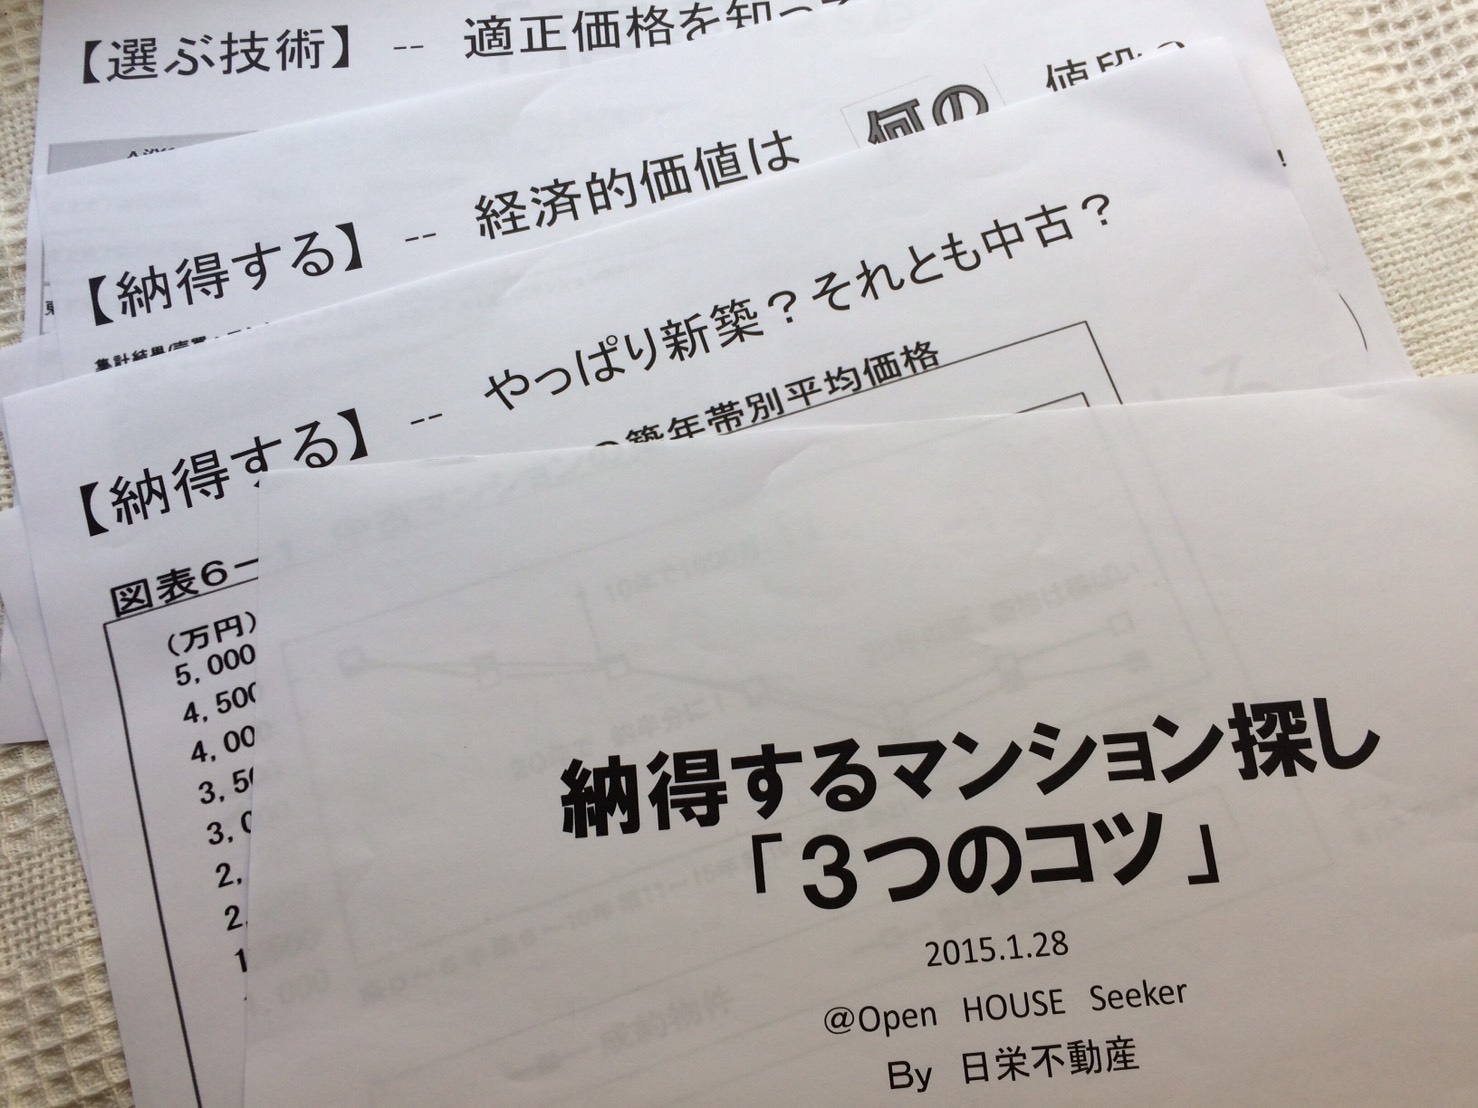 【選ぶ技術】 -- 適正価格を知っ
【納得する】 -- 経済的価値は 何の 値段?
!
集計結果
【納得する】 -- やっぱり新築？それとも中古？
築年帯別平均価格
図表６－
(万円)
5,000
4,500
4,00
3,5
3,0
2,
2,
1
納得するマンション探し
「３つのコツ」
2015.1.28
@Open HOUSE Seeker
By 日栄不動産